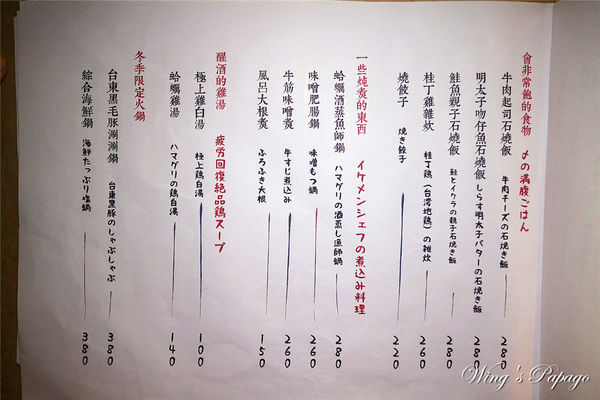 會非常飽的食物 〆の満腹ごはん
牛肉起司石燒飯 牛肉チーズの石焼き飯 280
明太子吻仔魚石燒飯 しらす明太子バターの石焼き飯 280
鮭魚親子石燒飯 鮭とイクラの親子石焼き飯 280
桂丁雞雜炊 桂丁鶏（台湾地鶏）の雑炊 260
燒餃子 焼き餃子 220
一些炖煮的東西 イケメンシェフの煮込み料理
蛤蠣酒蒸魚師鍋 ハマグリの酒蒸し漁師鍋 280
味噌肥腸鍋 味噌もつ鍋 260
牛筋味噌煮 牛すじ煮込み 260
風呂大根煮 ふろふき大根 150
醒酒的雞湯 疲労回復絶品鶏スープ
極上雞白湯 極上鶏白湯 100
蛤蠣雞湯 ハマグリの鶏白湯 140
冬季限定火鍋
台東黑毛豚涮涮鍋 台東黒豚のしゃぶしゃぶ 380
綜合海鮮鍋 海鮮たっぷり塩鍋 380
Wing's Papago